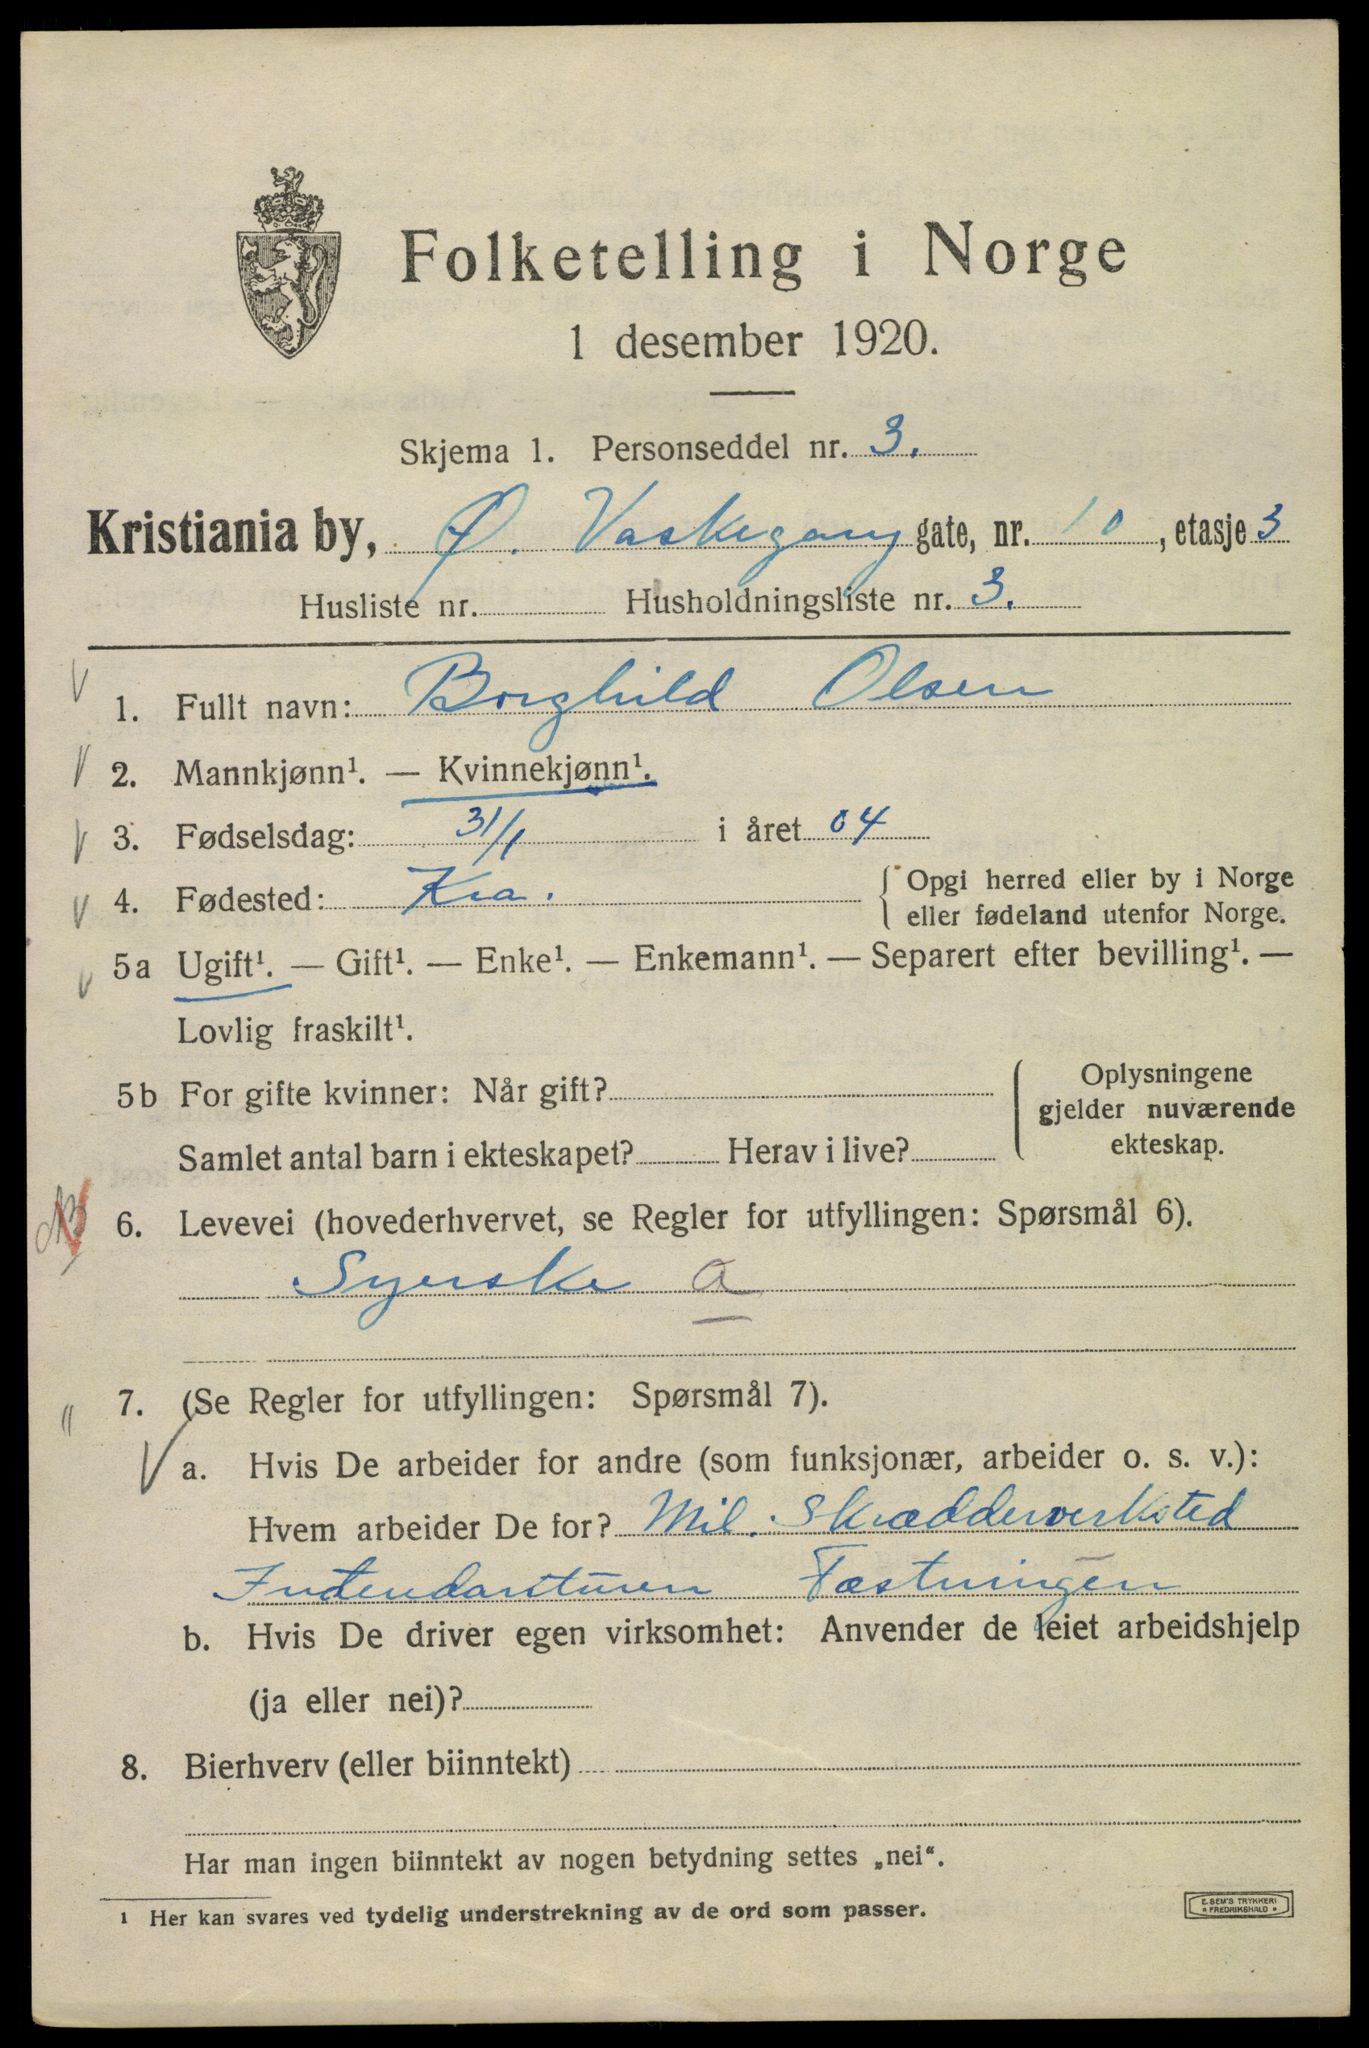 Folketelling i Norge
1 desember 1920.
Skjema 1. Personseddel nr. 3.
Kristiania by, Ø. Vaskegang gate, nr. 10, etasje 3
Husliste nr. Husholdningsliste nr. 3.
1. Fullt navn: Borghild Olsen
2. Mannkjønn¹. — Kvinnekjønn¹.
3. Fødselsdag: 31/1 i året 04
4. Fødested: Kra. Opgi herred eller by i Norge
eller fødeland utenfor Norge.
5a Ugift¹. — Gift¹. — Enke¹. — Enkemann¹. — Separert efter bevilling¹. —
Lovlig fraskilt¹.
5b For gifte kvinner: Når gift?
Samlet antal barn i ekteskapet? Herav i live?
Oplysningene
gjelder nuværende
ekteskap.
6. Levevei (hovederhvervet, se Regler for utfyllingen: Spørsmål 6).
Syerske a
7. (Se Regler for utfyllingen: Spørsmål 7).
a. Hvis De arbeider for andre (som funksjonær, arbeider o. s. v.):
Hvem arbeider De for? Mil. Skrædderverksted
Intendanturen Fæstningen
b. Hvis De driver egen virksomhet: Anvender de leiet arbeidshjelp
(ja eller nei)?
8. Bierhverv (eller biinntekt)
Har man ingen biinntekt av nogen betydning settes „nei“.
1 Her kan svares ved tydelig understrekning av de ord som passer.
E. SEM'S TRYKKERI
* FREDRIKSHALD *